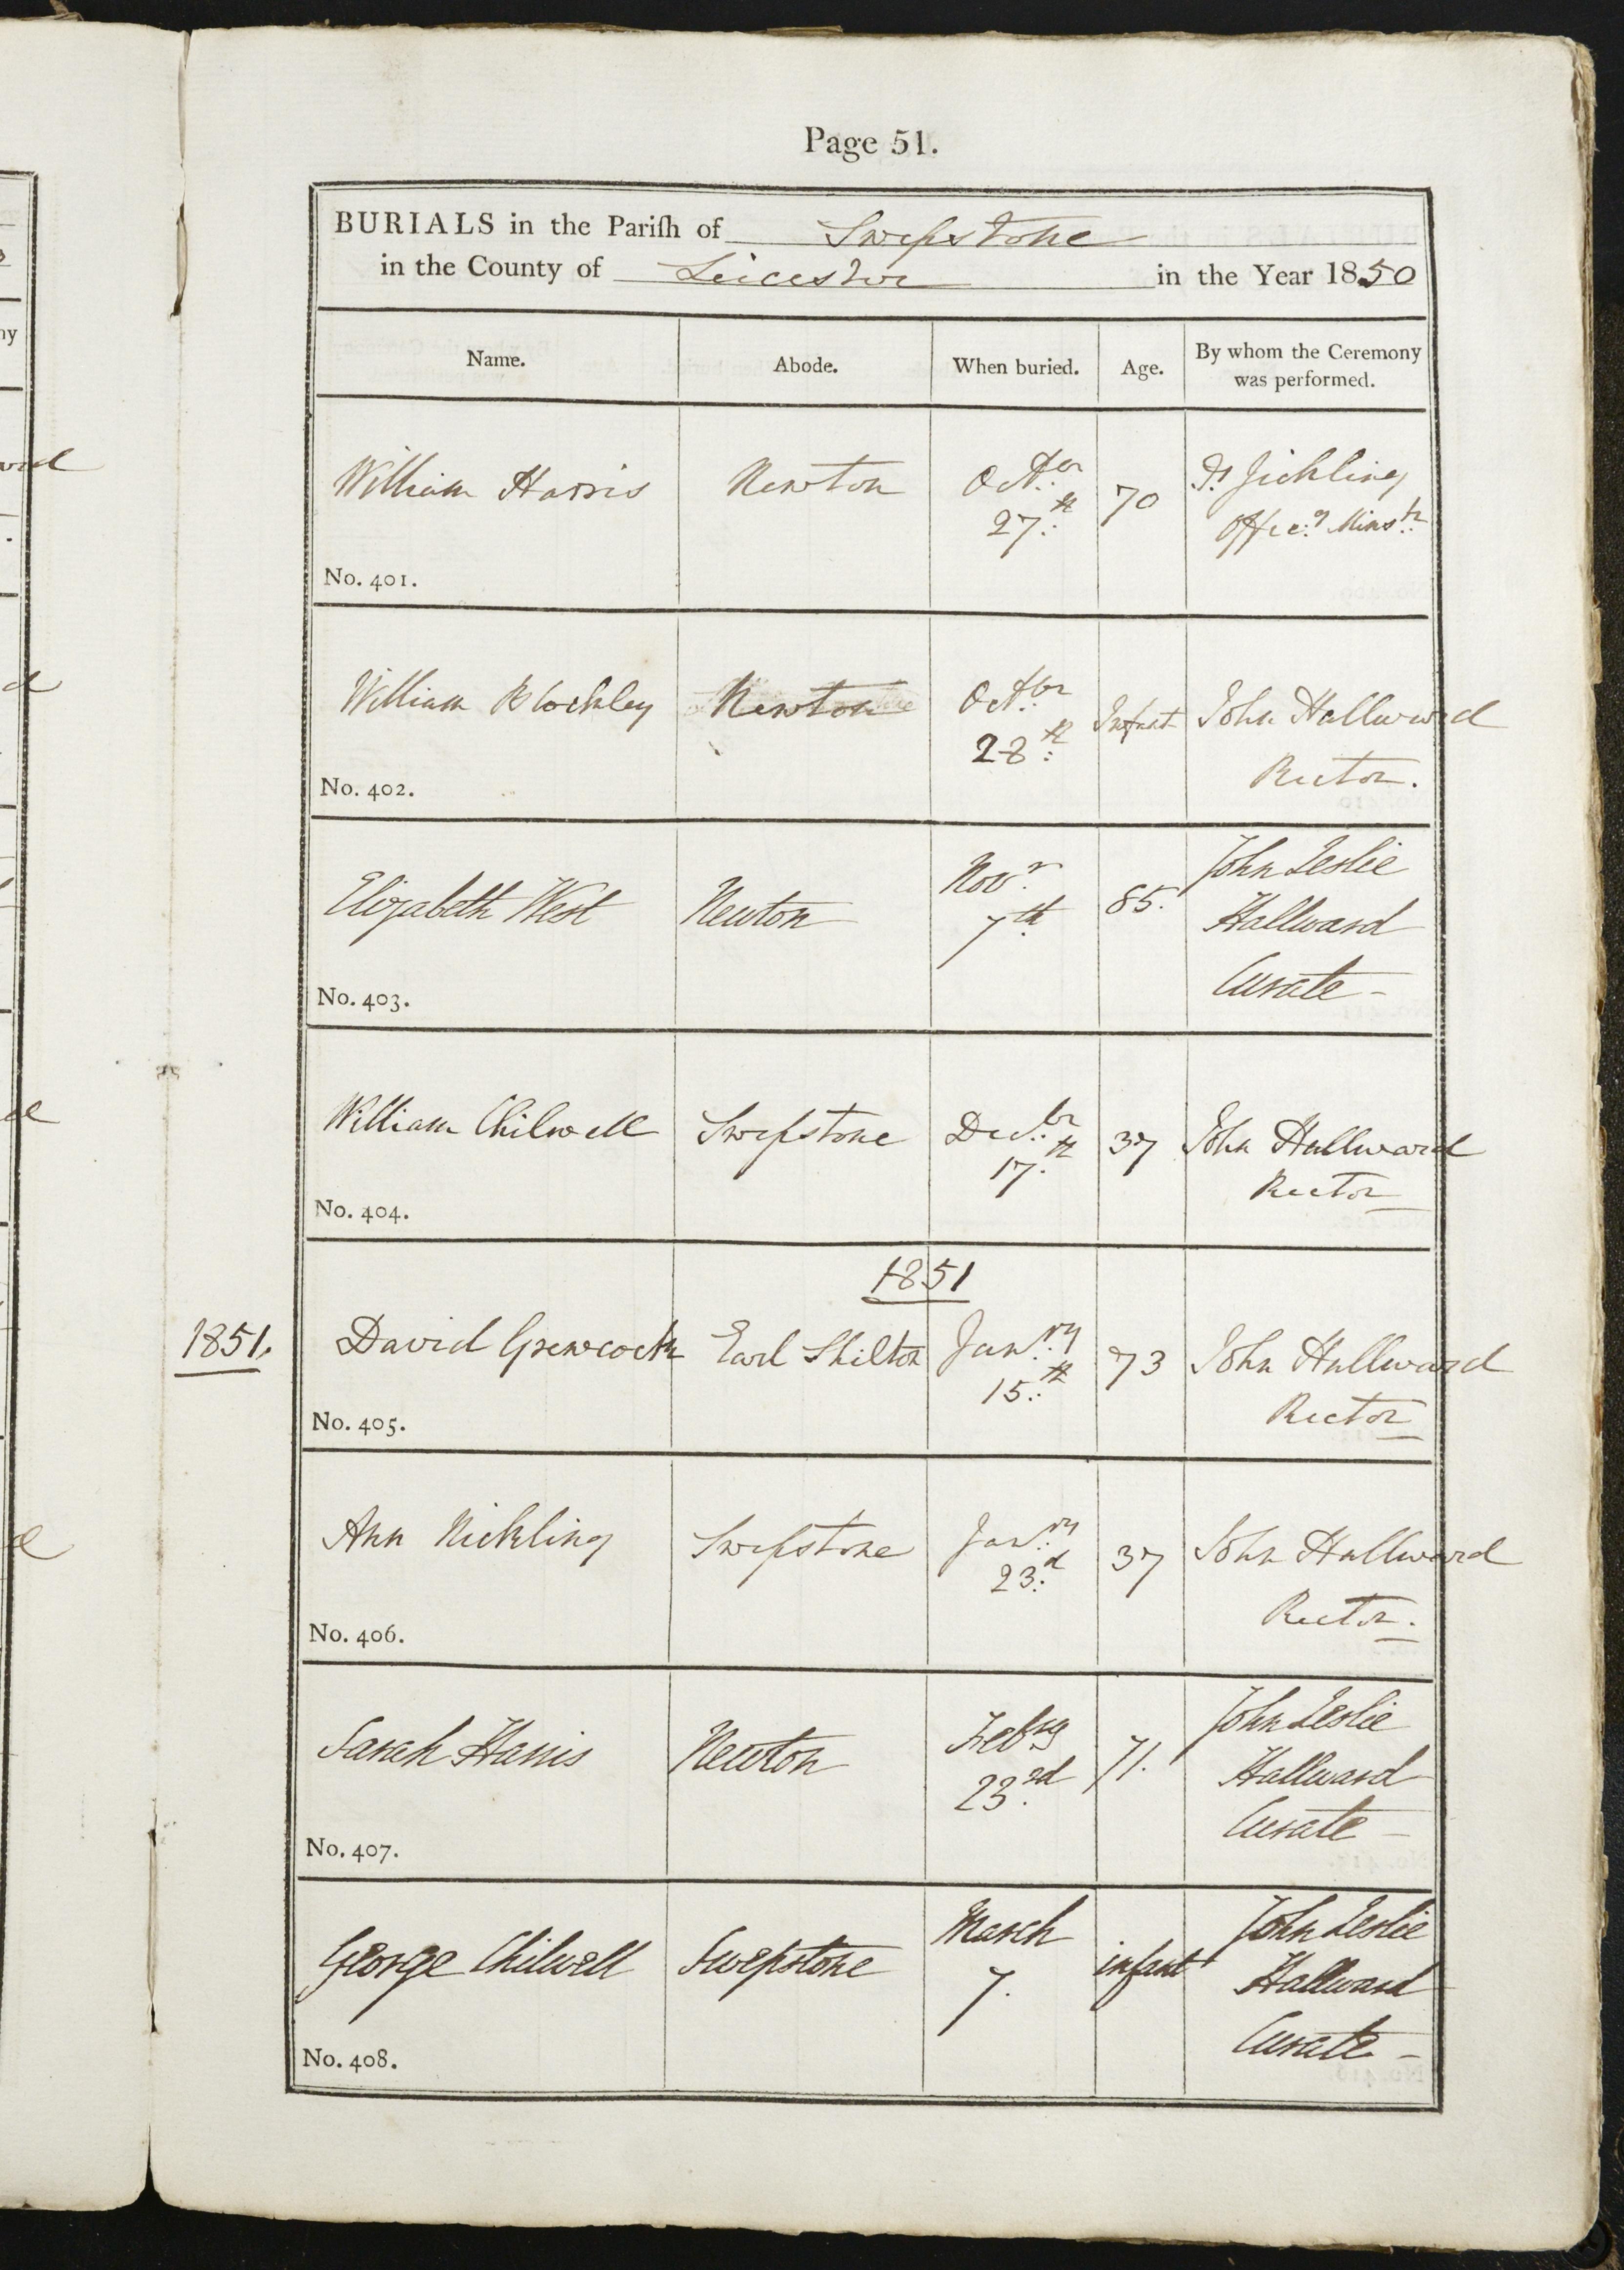 Page 51.
BURIALS in the Pariſh of Swepstone
in the County of Leicester in the Year 1850
Name. Abode. When buried. Age. By whom the Ceremony
was performed.
William Harris Newton Octber 70
27th Offic.g Minstr
No. 401.
William Blockley Newton Octbr Infant John Hallward
28th Rector.
No. 402.
John Leslie
Elizabeth West Newton Novr 85. Hallward
7th Curate -
No. 403.
William Chilwell Swepstone Decbr 37 John Hallward
17th Rector
No. 404.
1851
1851. David Grewcock Earl Shilton Janry 73 John Hallward
15th Rector
No. 405.
Ann Nickling Swepstone Janry 37 John Hallward
23d Rector.
No. 406.
John Leslie
Sarah Harris Newton Febry 71. Hallward
23rd Curate -
No. 407.
March John Leslie
George Chilwell Swepstone 7. infant Hallward
Curate -
No. 408.